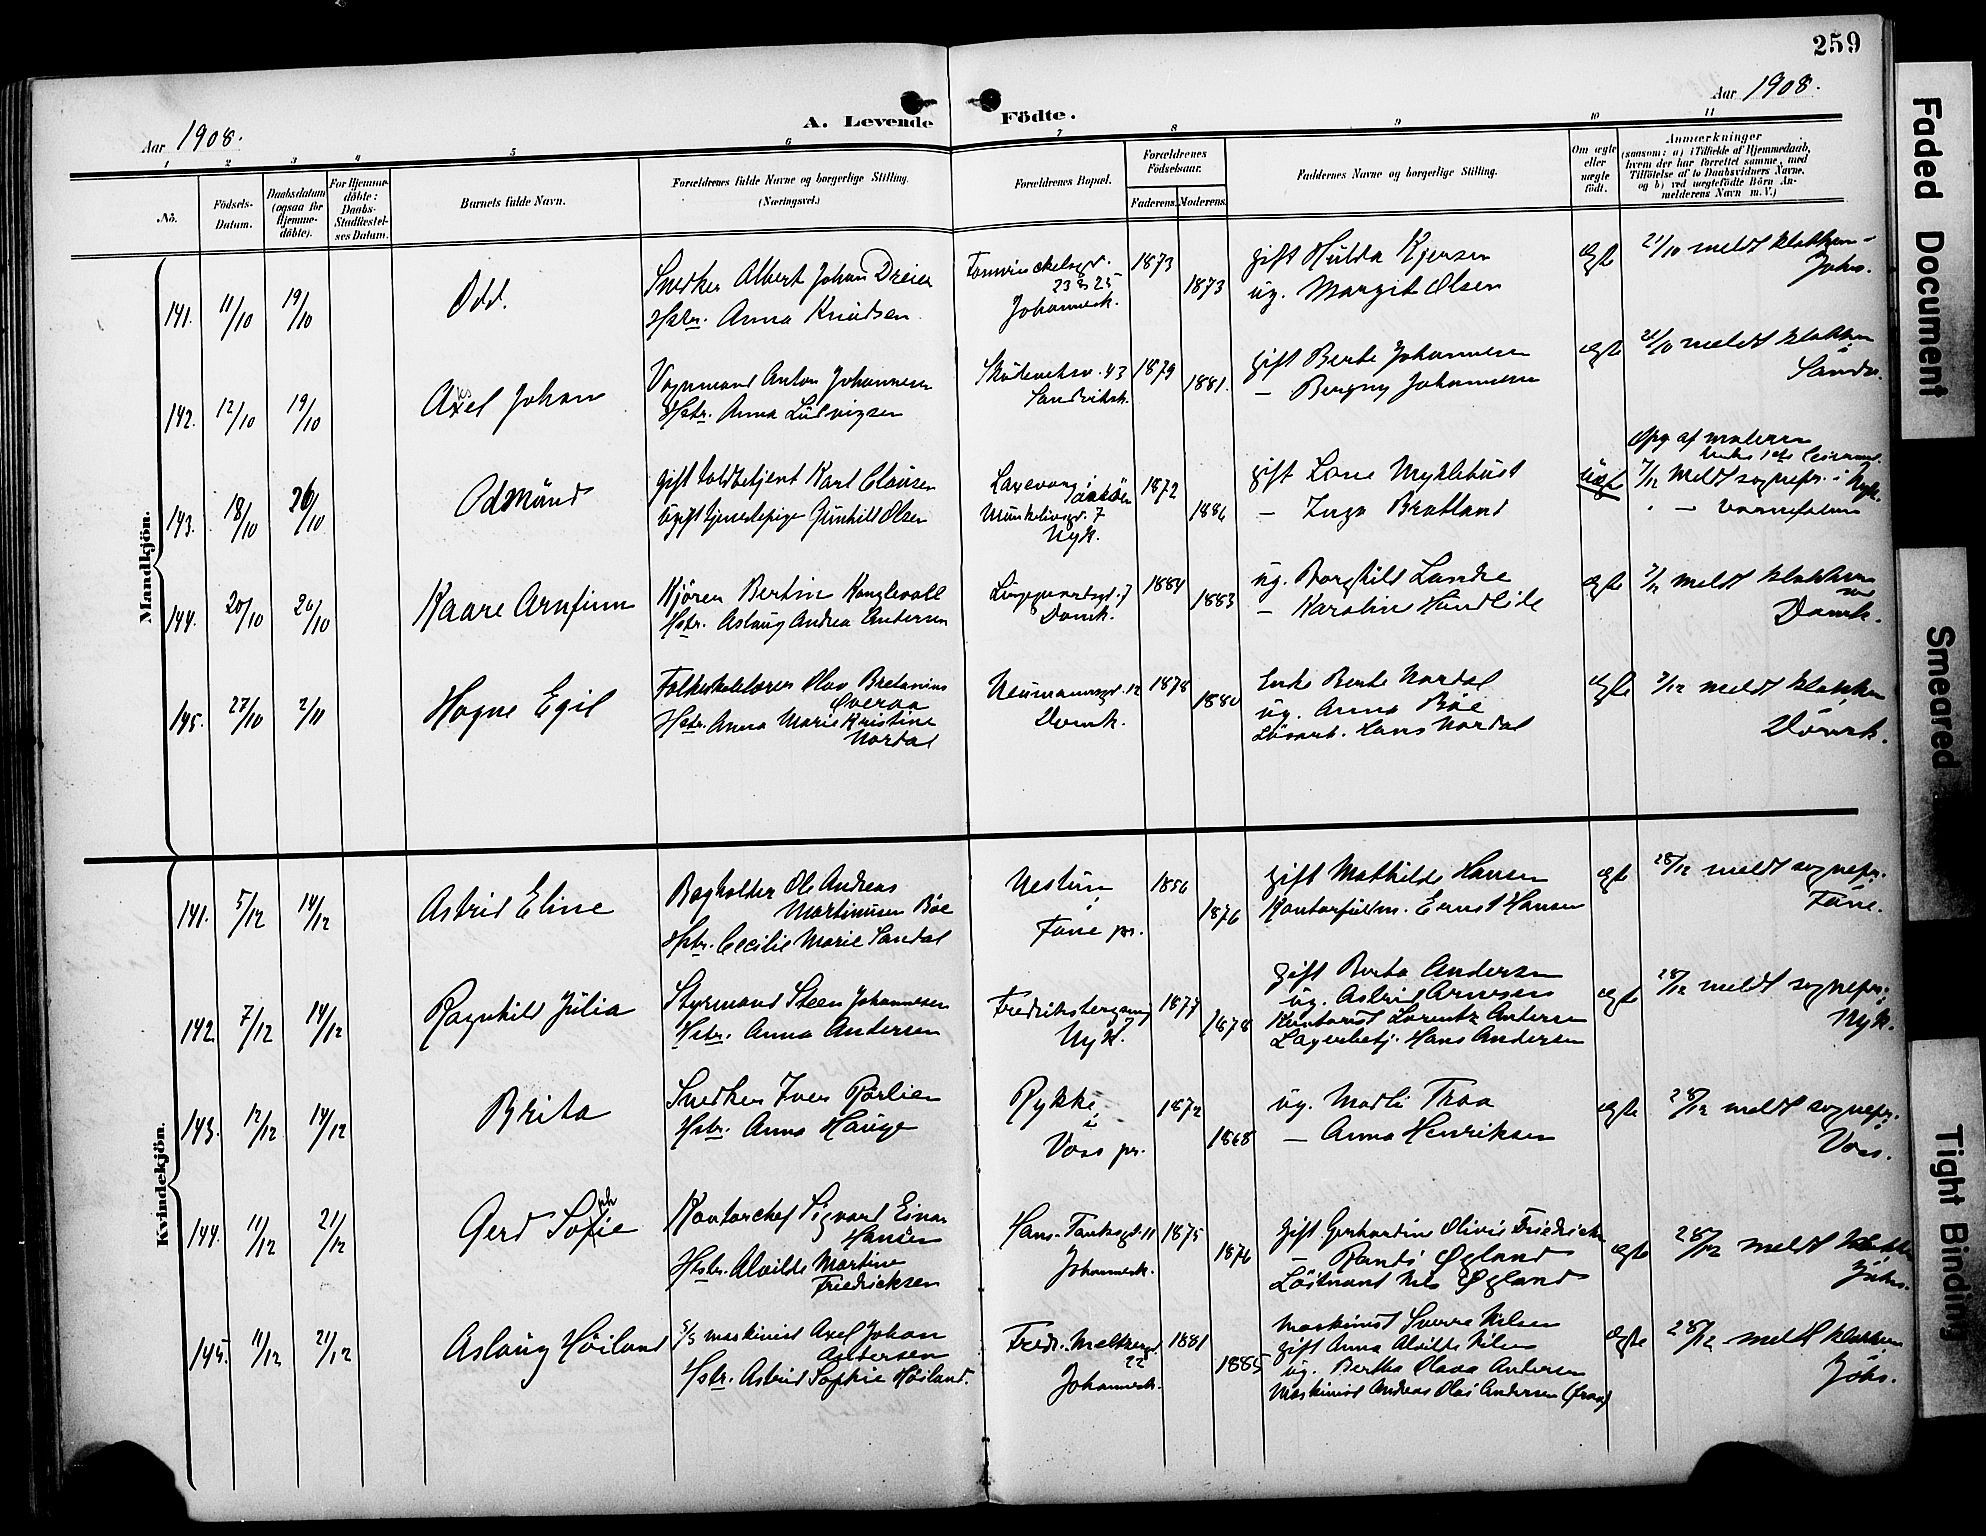 259
Aar 1908.
A. Levende Födte.
Aar 1908.
1 2 3 4 5 6 7 8 9 10 11
Nö.
Födsels-
Datum.
Daabsdatum
(ogsaa for
Hjemme-
döbte).
For Hjemme-
döbte:
Daabs-
Stadfæstel-
ses Datum.
Barnets fulde Navn.
Forældrenes fulde Navne og borgerlige Stilling.
(Næringsvei.)
Forældrenes Bopæl.
Forældrenes
Födselsaar.
Faderens.
Moderens.
Faddernes Navne og borgerlige Stilling.
Om ægte
eller
uægte
födt.
Anmærkninger
(saasom: a) i Tilfælde af Hjemmedaab,
hvem der har forrettet samme, med
Tilföielse af to Daabsvidners Navne,
og b) ved uægtefödte Börn An-
melderens Navn m. V.)
Mandkjön.
141. 11/10 19/10
Odd.
Snedker Albert Johan Dreier
Hstr. Anna Knudsen
23 & 25
Johannesk.
1873
1873
gift Hulda Kjersen
ug. Margit Olsen
ægte
21/10 meldt klokkeren
Johs.
142. 12/10 19/10
Axel Johan
Vognmand Anton Johannesen
Hstr. Anna Ludvigsen
43
Sandviksk.
1879
1881.
gift Berte Johannesen
— Bergny Johannesen
ægte
meldt klokkeren
Sandv.
143. 18/10 26/10
Odmund
gift toldbetjent Karl Clausen
ugift tjenestepige Gunhild Olsen
Laxevaag
Munkelivsgd. 7
Nyk.
1872
1886
gift Lone Myklebust
— Inga Bratland
uægte
Opg af moderen
7/12 meldt sognepr. i Nyk.
" —
144. 20/10 26/10
Kaare Arnfinn
Kjörer Bertin Kanglevoll
Hstr. Aslaug Andrea Andersen
7
Domk.
1884
1883
ug. Borghild Lande
— Karolin Hundlide
ægte
7/12 meldt klokkeren
Domk.
145. 27/10 2/11
Hogne Egil
Folkeskolelærer Olav Bretanius
Øveraa
Hstr. Anna Marie Kristine
Nordal
Neumannsgd. 12
Domk.
1878
1880
Enke Berte Nordal
ug. Anna Böe
Lösarb. Hans Nordal
ægte
7/12 meldt klokkeren
Domk.
Kvindekjön.
141. 5/12 14/12
Astrid Eline
Bogholder Ole Andreas
Martinusen Böe
Hstr. Cecilie Marie Sandal
Nestun,
Fane pr.
1856
1876
gift Mathilde Hansen
Kontorfuldm. Ernst Hansen
ægte
28/12 meldt sognepr.
Fane.
142 7/12 14/12
Ragnhild Julia
Styrmand Steen Johannesen
Hstr. Anna Andersen
Nyk.
1877
1878
gift Berta Andersen
ug. Astrid Arnesen
Kontorist Lorentz Andersen
Lagerbetj. Hans Andersen
ægte
28/12 meldt sognepr. i
Nyk.
143. 12/12 14/12
Brita
Snedker Iver Rørlien
Hstr. Anna Hauge
Rykke,
Voss pr.
1872
1868
ug. Madli Traa
— Anna Henriksen
ægte
28/12 meldt sognepr.
Voss.
144. 11/12 21/12
Gerd Sofie
ph
Kontorchef Sigvard Einar
Hansen
Hstr. Alvilde Martine
Friedricksen
Hans Tanksgd. 11
Johannesk.
1875
1876
gift Gerhardine Olivie Friedricksen
— Randi Øgland
Löitnant Nils Øgland
ægte
28/12 meldt klokkeren
Johs.
145. 11/12 21/12
Aslaug Höiland
S/S maskinist Axel Johan
Andersen
Hstr. Astrid Sophie Höiland.
Fredr. Meltzersgd.
22
Johannesk.
1881
1885
Maskinist Sverre Nilsen
gift Anna Alvilde Nilsen
ug. Bertha Olava Andersen
Maskinist Andreas Olai Andersen (fravr)
ægte
28/12 meldt klokkeren
Johs.
Faded Document
Smeared
Tight Binding